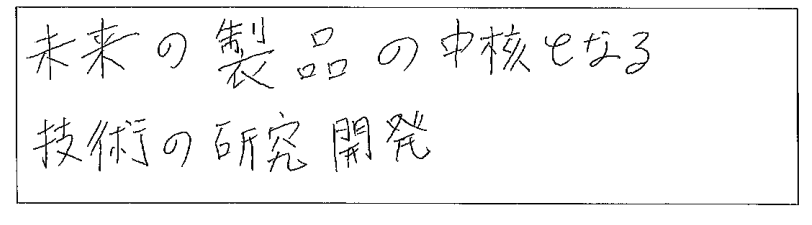 未来の製品の中核となる
技術の研究開発